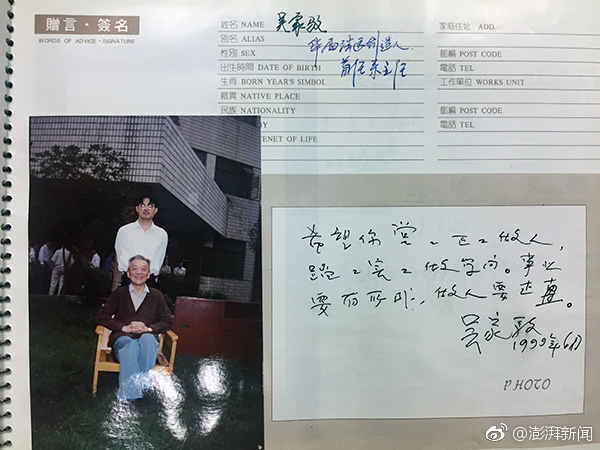 贈言・簽名
WORDS OF ADVICE・SIGNATURE
姓名 NAME 吴家
別名 ALIAS 华西法医创造人
性別 SEX 首任系主任
出生時間 DATE OF BIRTH
生肖 BORN YEAR'S SIMBOL
籍貫 NATIVE PLACE
民族 NATIONALITY
BY
TENET OF LIFE
家庭住址 ADD.
郵編 POST CODE
電話 TEL
工作單位 WORKS UNIT
郵編 POST CODE
電話 TEL
希望你堂々正々做人，
踏々实々做学问。事业
要有所成，做人要正直。
吴家
1999年6月
PHOTO
@澎湃新闻